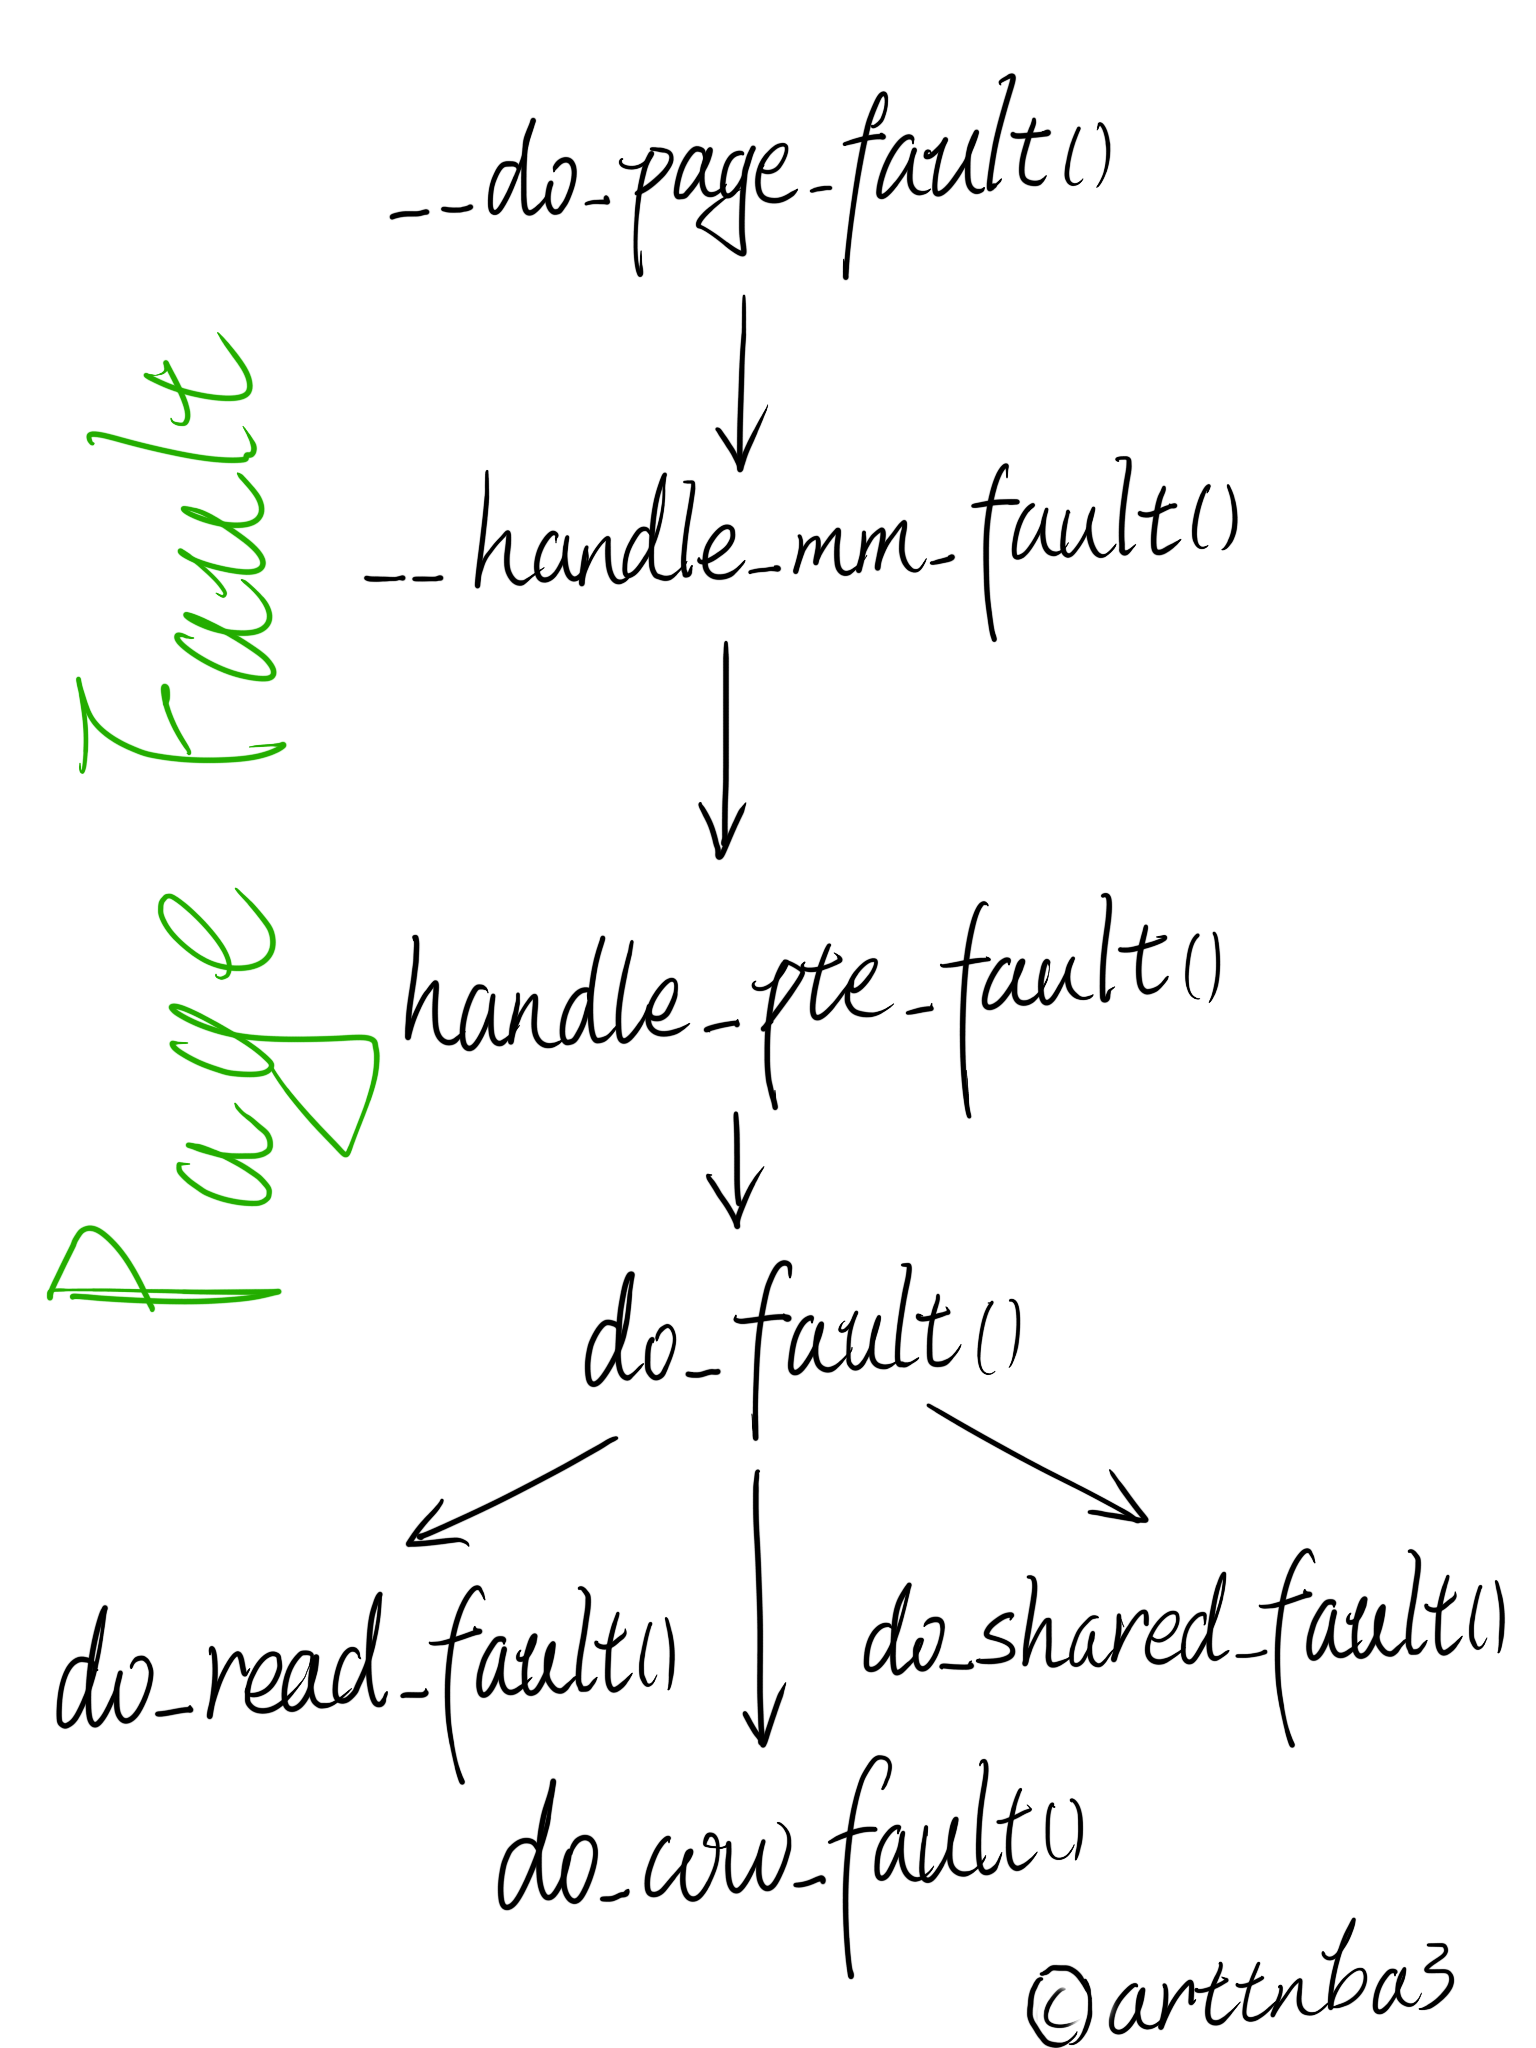 __do_page_fault()
Page Fault
__handle_mm_fault()
handle_pte_fault()
do_fault()
do_read_fault()
do_shared_fault()
do_cow_fault()
©arttnba3